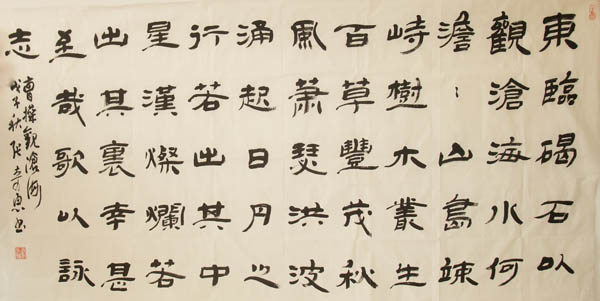 東臨碣石以
觀滄海水何
澹〻山島竦
峙樹木叢生
百草豐茂秋
風蕭瑟洪波
涌起日月之
行若出其中
星漢燦爛若
出其裏幸甚
至哉歌以詠
志
曹操觀滄海
戊子秋张書